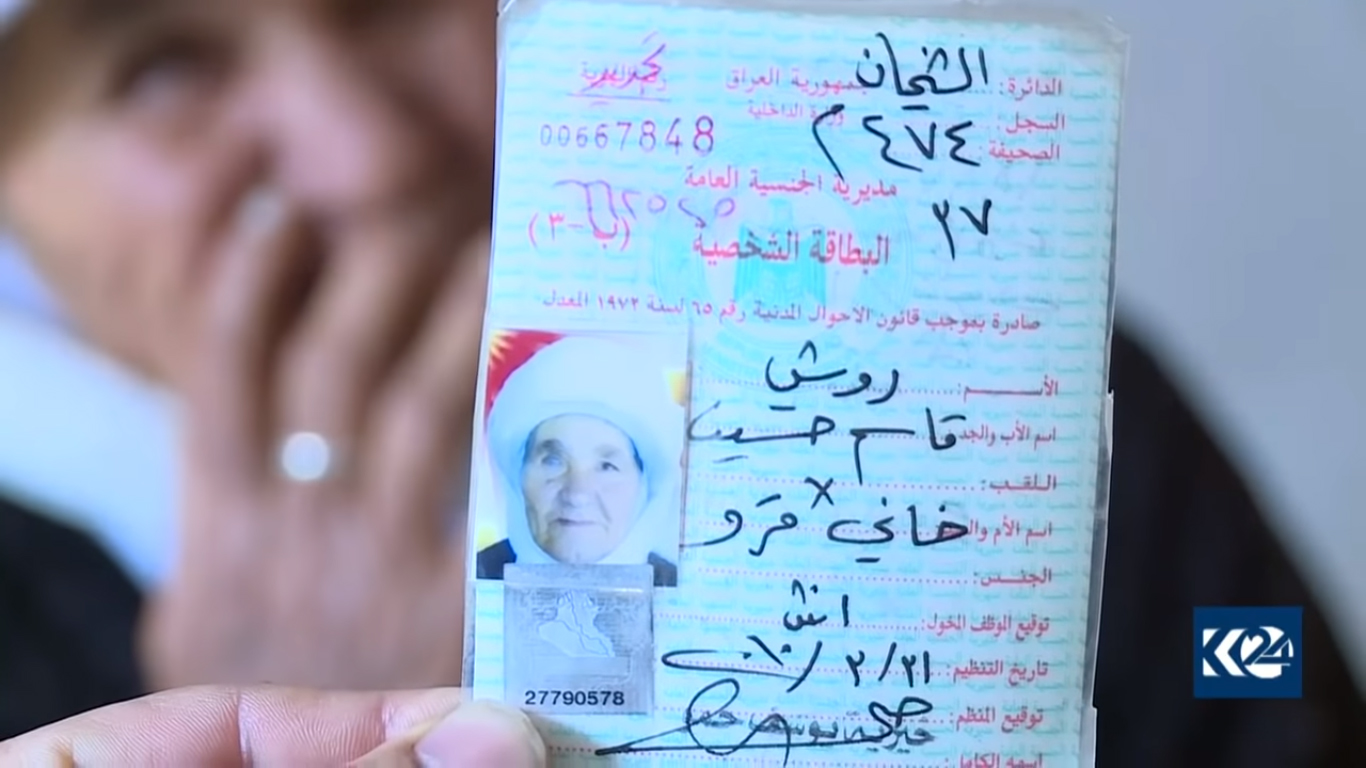 الدائرة: الشيخان
جمهورية العراق
السجل: ٤٧٤ م
وزارة الداخلية
00667848
الصحيفة:
٣٧
مديرية الجنسية العامة
(با-٣)
البطاقة الشخصية
صادرة بموجب قانون الاحوال المدنية رقم ٦٥ لسنة ١٩٧٢ المعدل
الأسم: روشي
اسم الأب والجد قاسم حسين
اللقب: x
اسم الأم وال خاني
الجنس: انثى
توقيع الموظف المخول:
تاريخ التنظيم: ٣١/٣/
توقيع المنظم:
اسمه الكامل:
27790578
K24